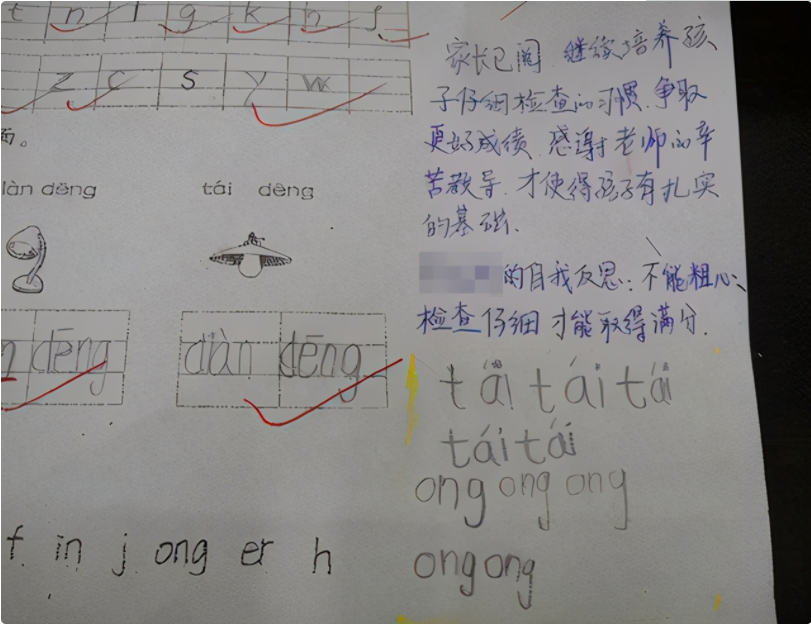 t n l g k h f
z c s y w
面。
家长已阅 继续培养孩
子仔细检查的习惯.争取
更好成绩.感谢老师的辛
苦教导.才使得孩子有扎实
的基础.
làn dēng tái dēng
的自我反思:不能粗心;
检查仔细才能取得满分.
n dēng diàn dēng
tái tái tái
tái tái
ong ong ong
ong ong
f in j ong er h